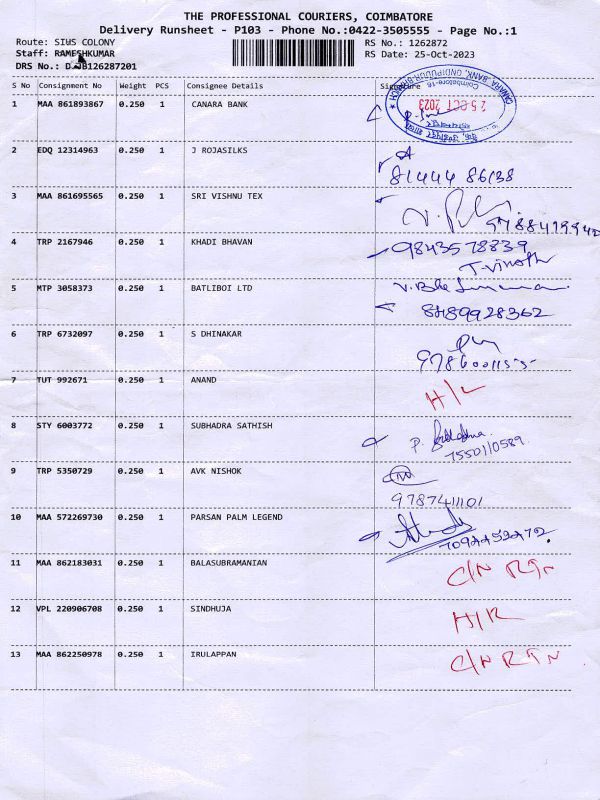 THE PROFESSIONAL COURIERS, COIMBATORE
Delivery Runsheet - P103 - Phone No.:0422-3505555 - Page No.:1
Route: SIHS COLONY RS No.: 1262872
Staff: RAMESHKUMAR RS Date: 25-Oct-2023
DRS No.: 126287201
S No Consignment No Weight PCS Consignee Details Signature
1 MAA 861893867 0.250 1 CANARA BANK
CANARA BANK, ONDIPUDUR BRANCH
Coimbatore-16
25 OCT 2023
2 EDQ 12314963 0.250 1 J ROJASILKS
81444 86138
3 MAA 861695565 0.250 1 SRI VISHNU TEX
4 TRP 2167946 0.250 1 KHADI BHAVAN 9843578839
T. Vinoth
5 MTP 3058373 0.250 1 BATLIBOI LTD
8489928362
6 TRP 6732097 0.250 1 S DHINAKAR
9786001155
7 TUT 992671 0.250 1 ANAND H/L
8 STY 6003772 0.250 1 SUBHADRA SATHISH
7550110589
9 TRP 5350729 0.250 1 AVK NISHOK
9787411101
10 MAA 572269730 0.250 1 PARSAN PALM LEGEND
11 MAA 862183031 0.250 1 BALASUBRAMANIAN C/N RTN
12 VPL 220906708 0.250 1 SINDHUJA H/R
13 MAA 862250978 0.250 1 IRULAPPAN C/N RTN